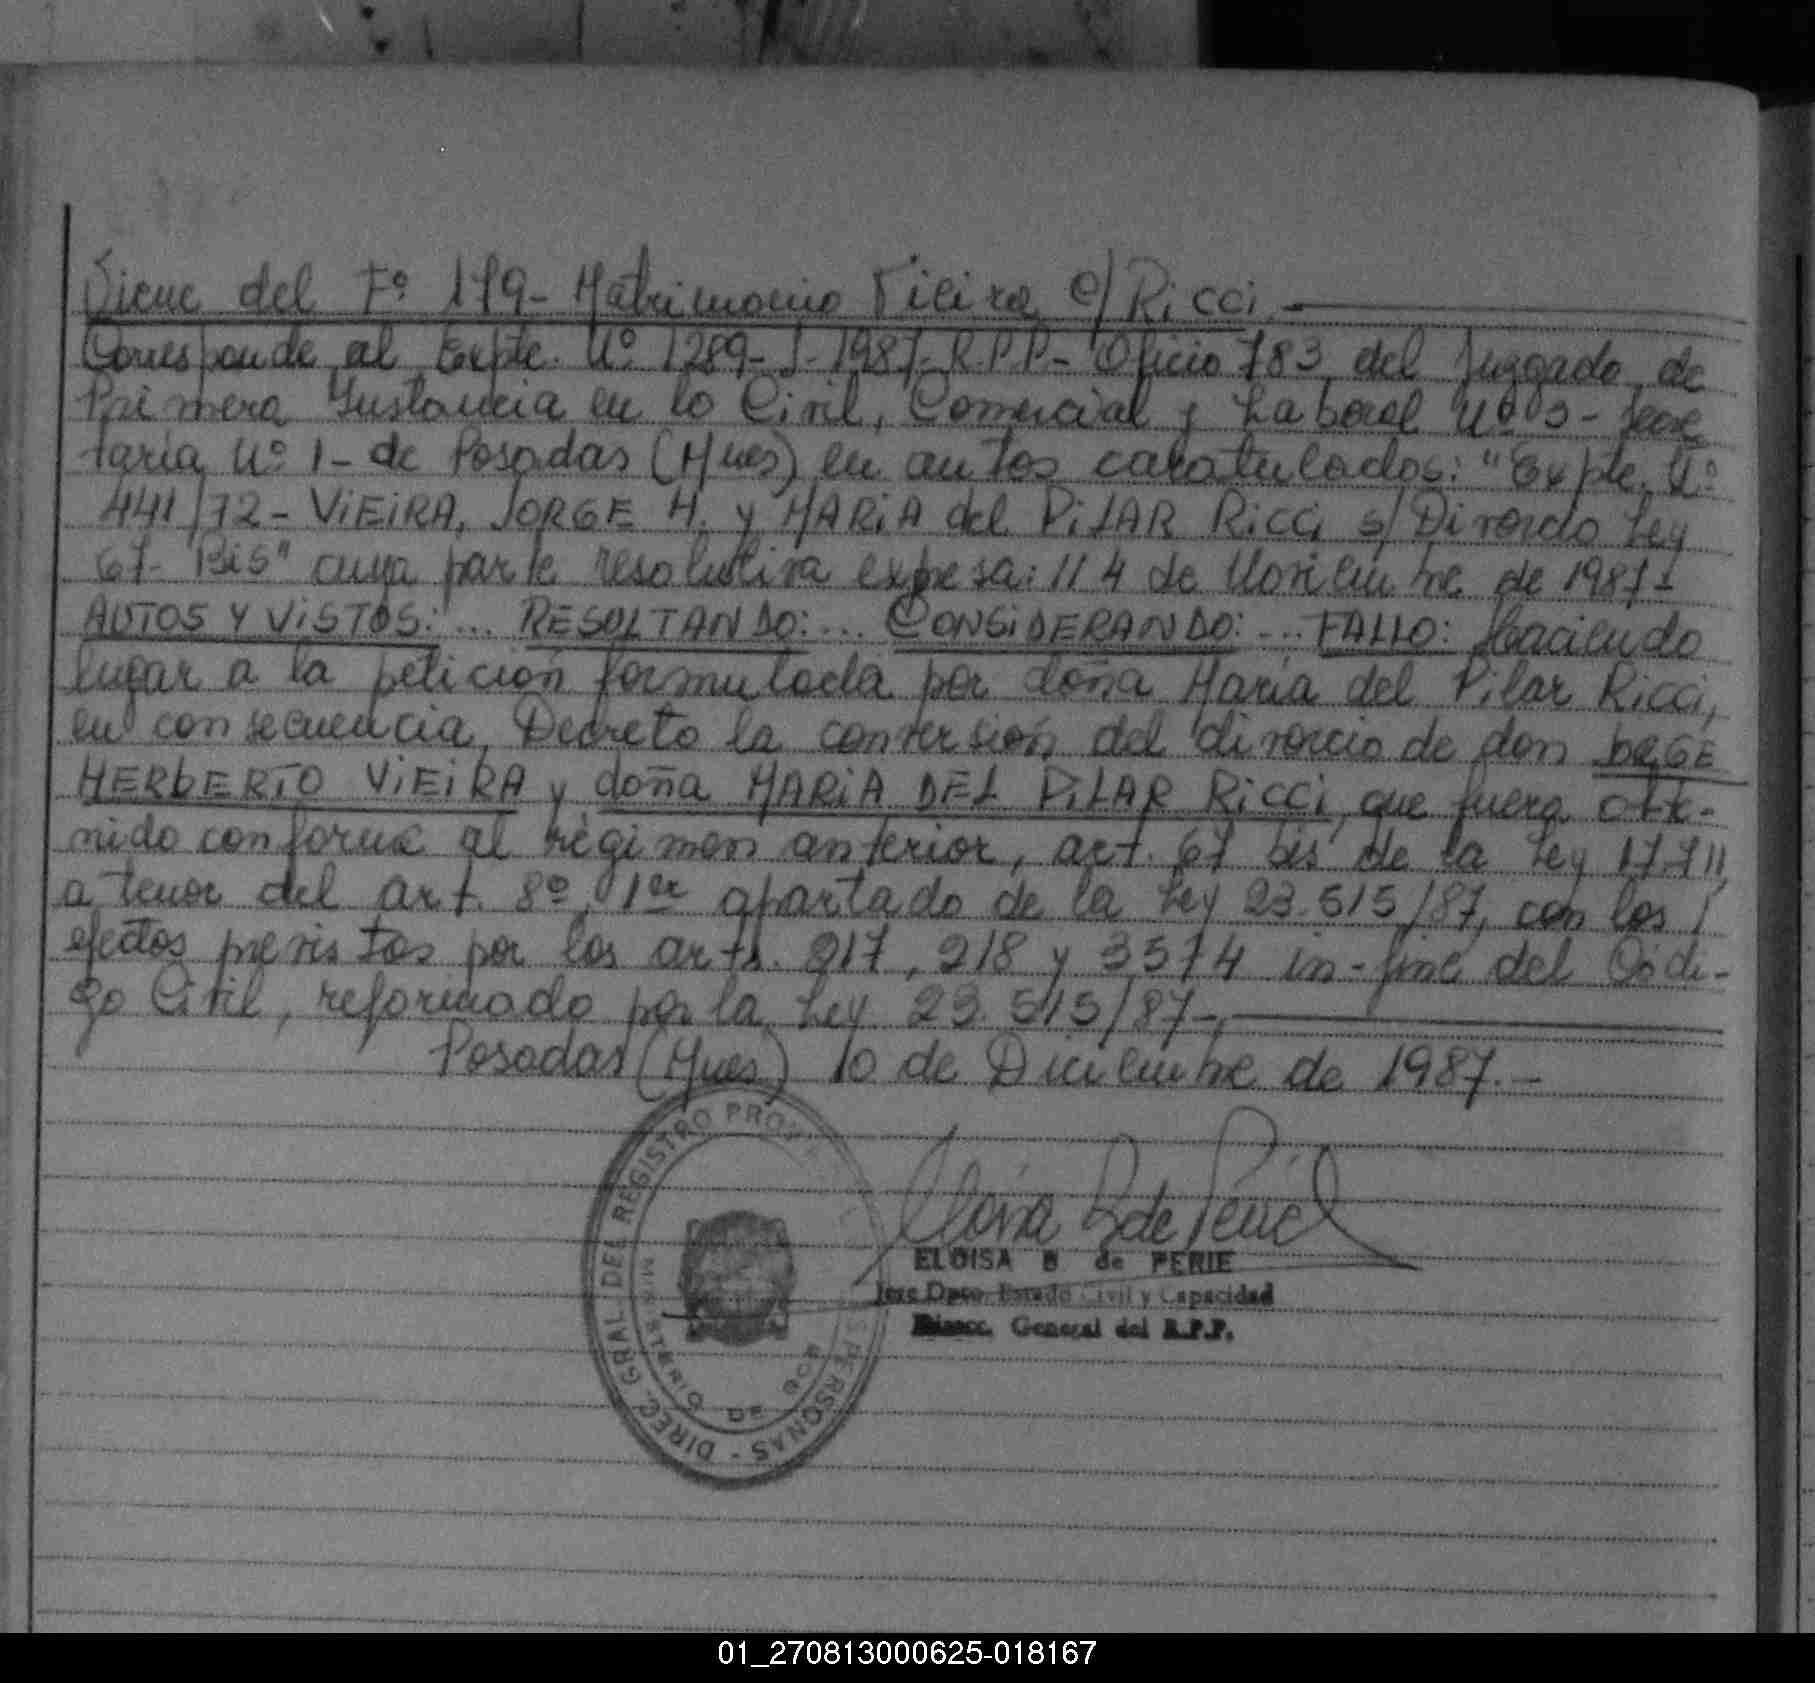 Viene del Fº 179- Matrimonio Vieira c/ Ricci.
Corresponde al Expte. Nº 1289-J-1987-R.P.P- Oficio 783 del Juzgado de
Primera Instancia en lo Civil, Comercial y Laboral Nº 3- Secre
taria Nº 1- de Posadas (Mnes) en autos caratulados: "Expte. Nº
441/72- VIEIRA, JORGE H. y MARIA del PILAR RICCI s/ Divorcio Ley
67- Bis" cuya parte resolutiva expresa: // 4 de Noviembre de 1987-
AUTOS Y VISTOS: ... RESULTANDO: ... CONSIDERANDO: ... FALLO: Haciendo
lugar a la petición formulada por doña Maria del Pilar Ricci,
en consecuencia, Decreto la conversión del divorcio de don JORGE
HERBERTO VIEIRA y doña MARIA DEL PILAR RICCI, que fuera obte-
nido conforme al règimen anterior, art. 67 bis de la Ley 17.711,
a tenor del art. 8º, 1er apartado de la Ley 23.515/87, con los
efectos previstos por los arts. 217, 218 y 3574 in-fine del Códi-
go Civil, reformado por la Ley 23.515/87-
Posadas (Mnes) 10 de Diciembre de 1987.-
DIREC. GRAL. DEL REGISTRO PROV. PERSONAS -
MINISTERIO DE GOB
Eloisa B de Perié
ELOISA B de PERIE
Jefe Dpto. Estado Civil y Capacidad
Direcc. General del R.P.P.
01_270813000625-018167